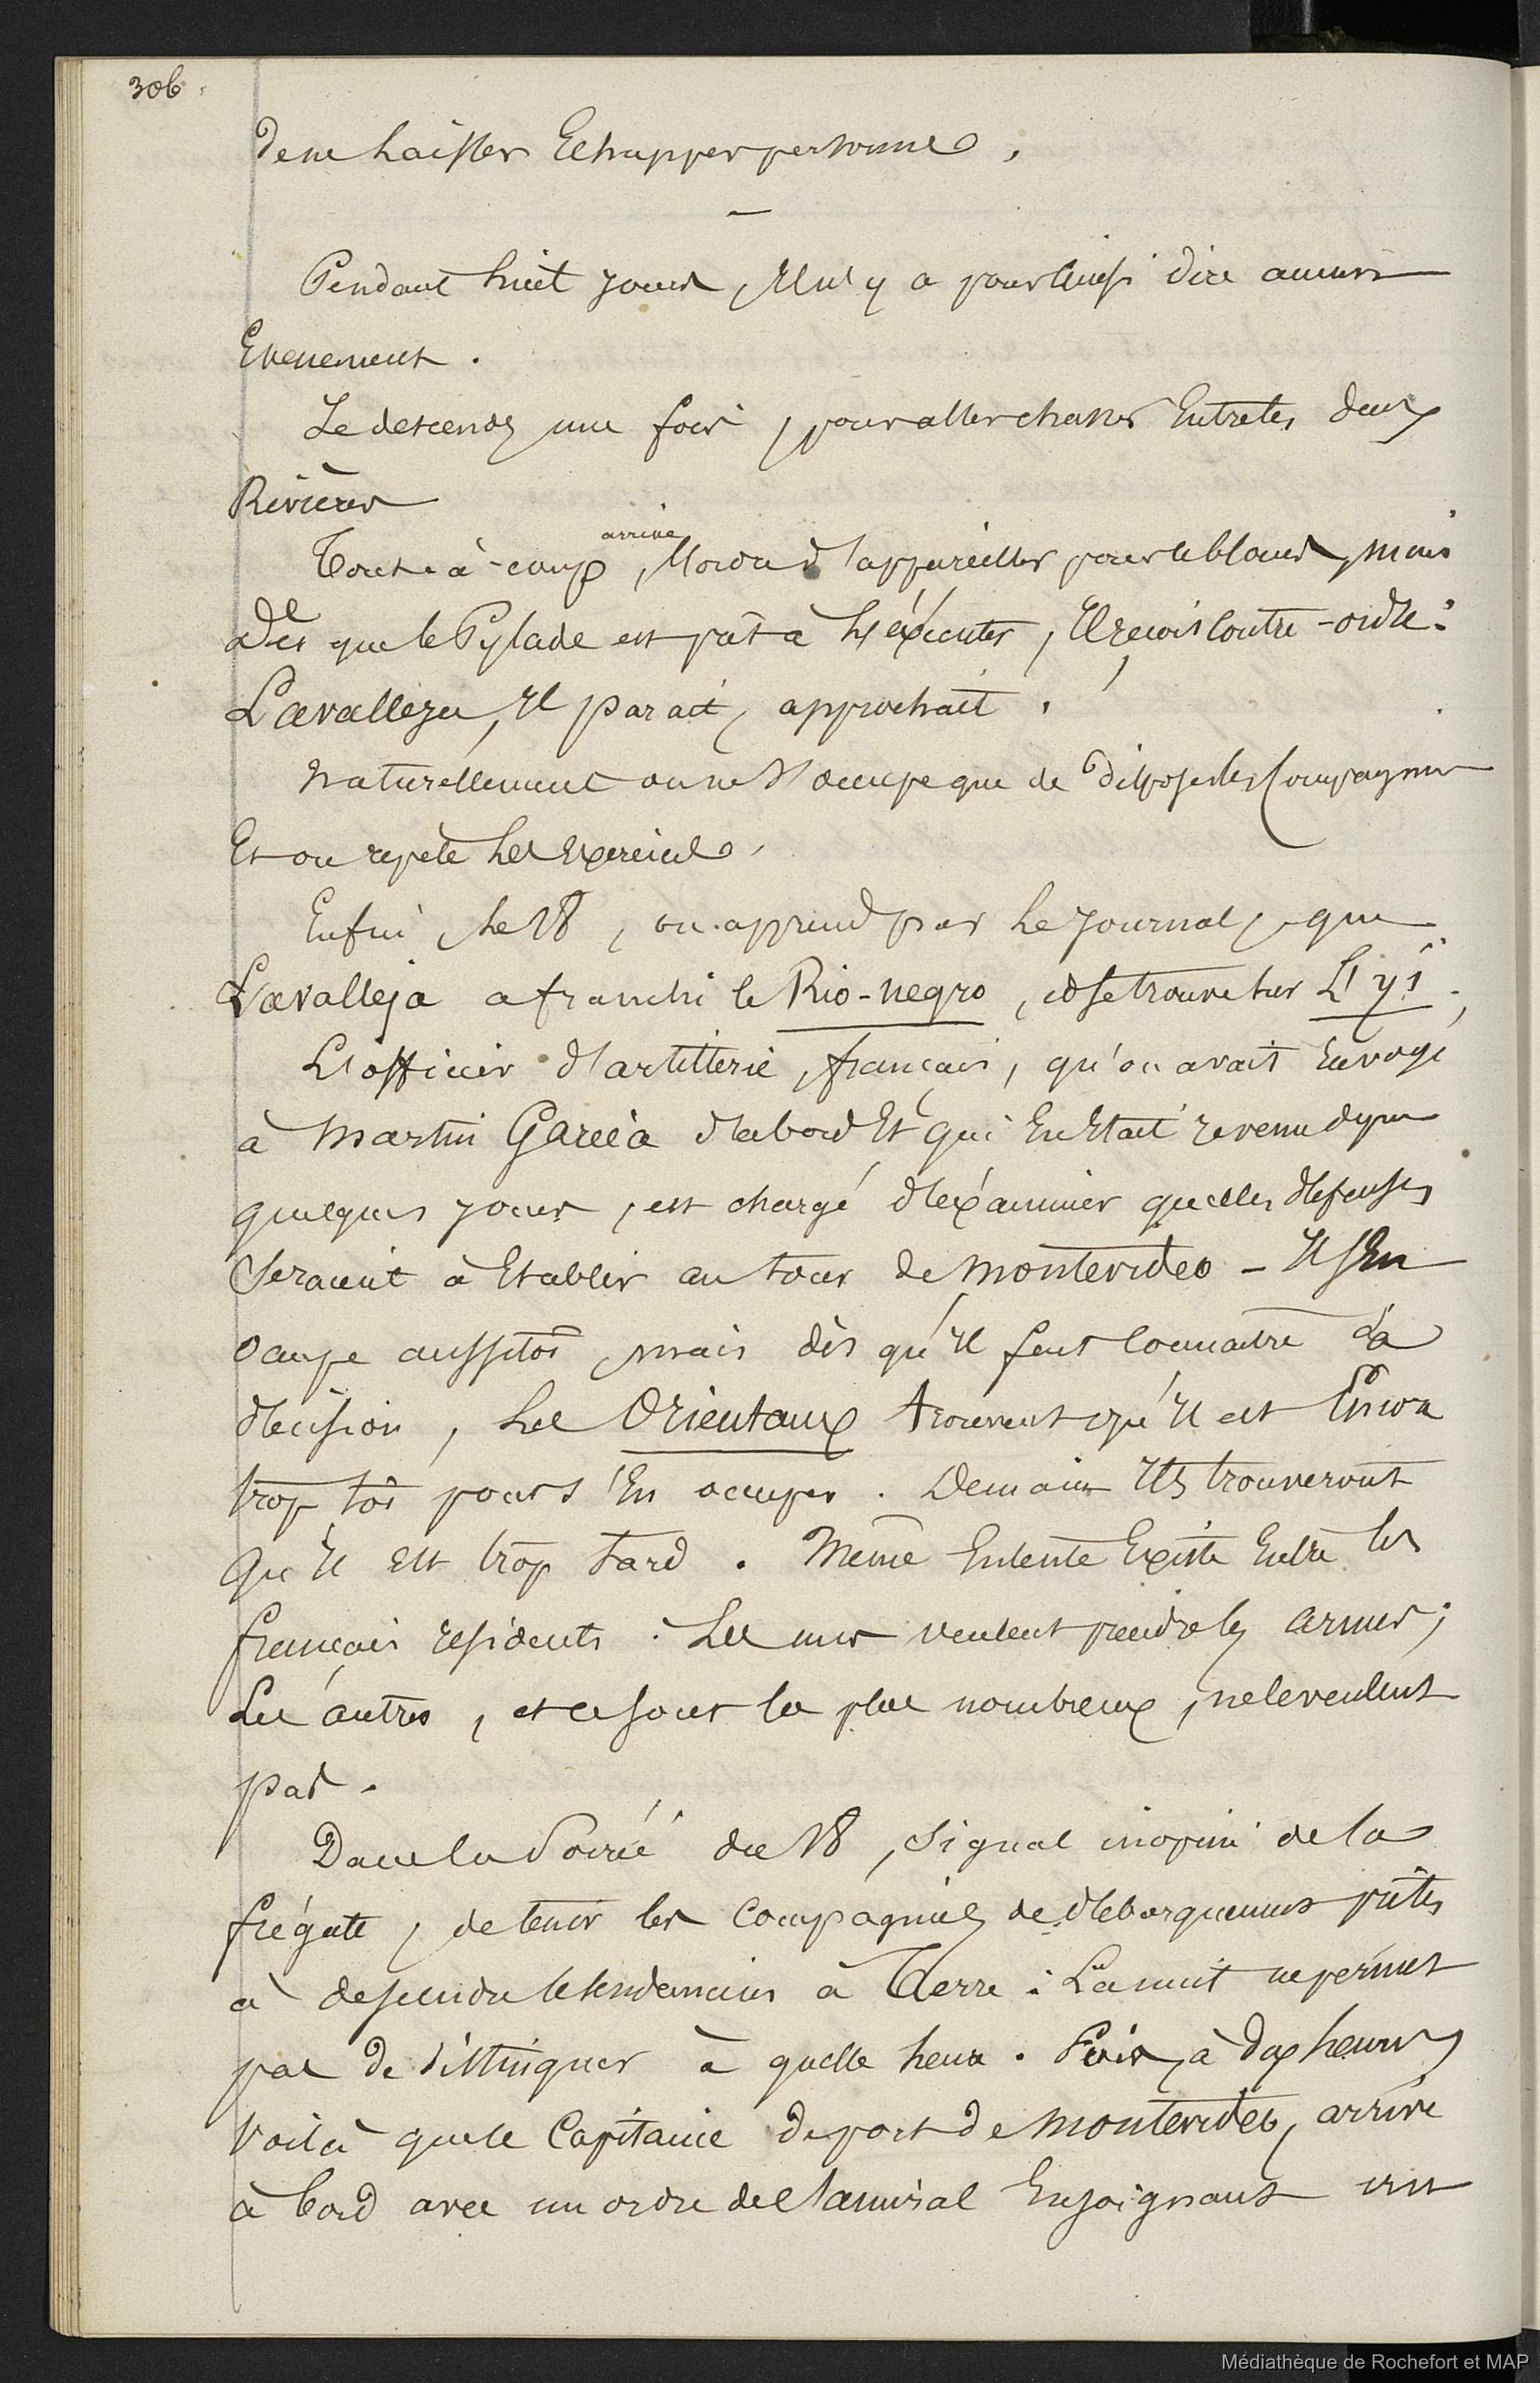 306.
de ne laisser Echapper personne,
—
Pendant huit jours, Il n'y a pour ainsi dire aucun
Evenement.
Je descends une fois, pour aller chasser Entre les deux
Rivières
Tout-à-coup, arrive l'ordre d'appareiller pour le blocus, mais
dès que le Pylade est prêt à l'éxécuter, Il reçoit contre-ordre:
Lavalleja, Il parait, approchait.
Naturéllement on ne s'occupe que de disposer les Compagnies
Et on repète les Exercices.
Enfin, le 18, on apprend par le Journal, que
Lavalleja a franchi le Rio-negro, et se trouve sur L'yi.
L'officier d'artillerie, français, qu'on avait Envoyé
à Martin Garcia d'abord Et qui En Etait revenu depuis
quelques jours, est chargé d'éxaminer quelles défenses
seraient à Etablir autour de Montevideo - Il s'En
occupe aussitôt, mais dès qu'Il faut connaître sa
décision, les Orientaux trouvent qu'Il est Encore
trop tôt pour s'En occuper. Demain Ils trouveront
qu'Il est trop tard. Même Entente Existe Entre les
français residents. Les uns veulent prendre les armes;
Les autres, et ce sont les plus nombreux, ne le veulent
pas.
Dans la Soirée du 18, signal inopiné de la
frégate, de tenir les Compagnies de débarquement prêtes
à descendre le lendemain à Terre: La nuit ne permet
pas de distinguer à quelle heure. Puis, à dix heures,
Voilà que le Capitaine de port de Montevideo, arrive
à bord avec un ordre de l'amiral Enjoignant un
Médiathèque de Rochefort et MAP